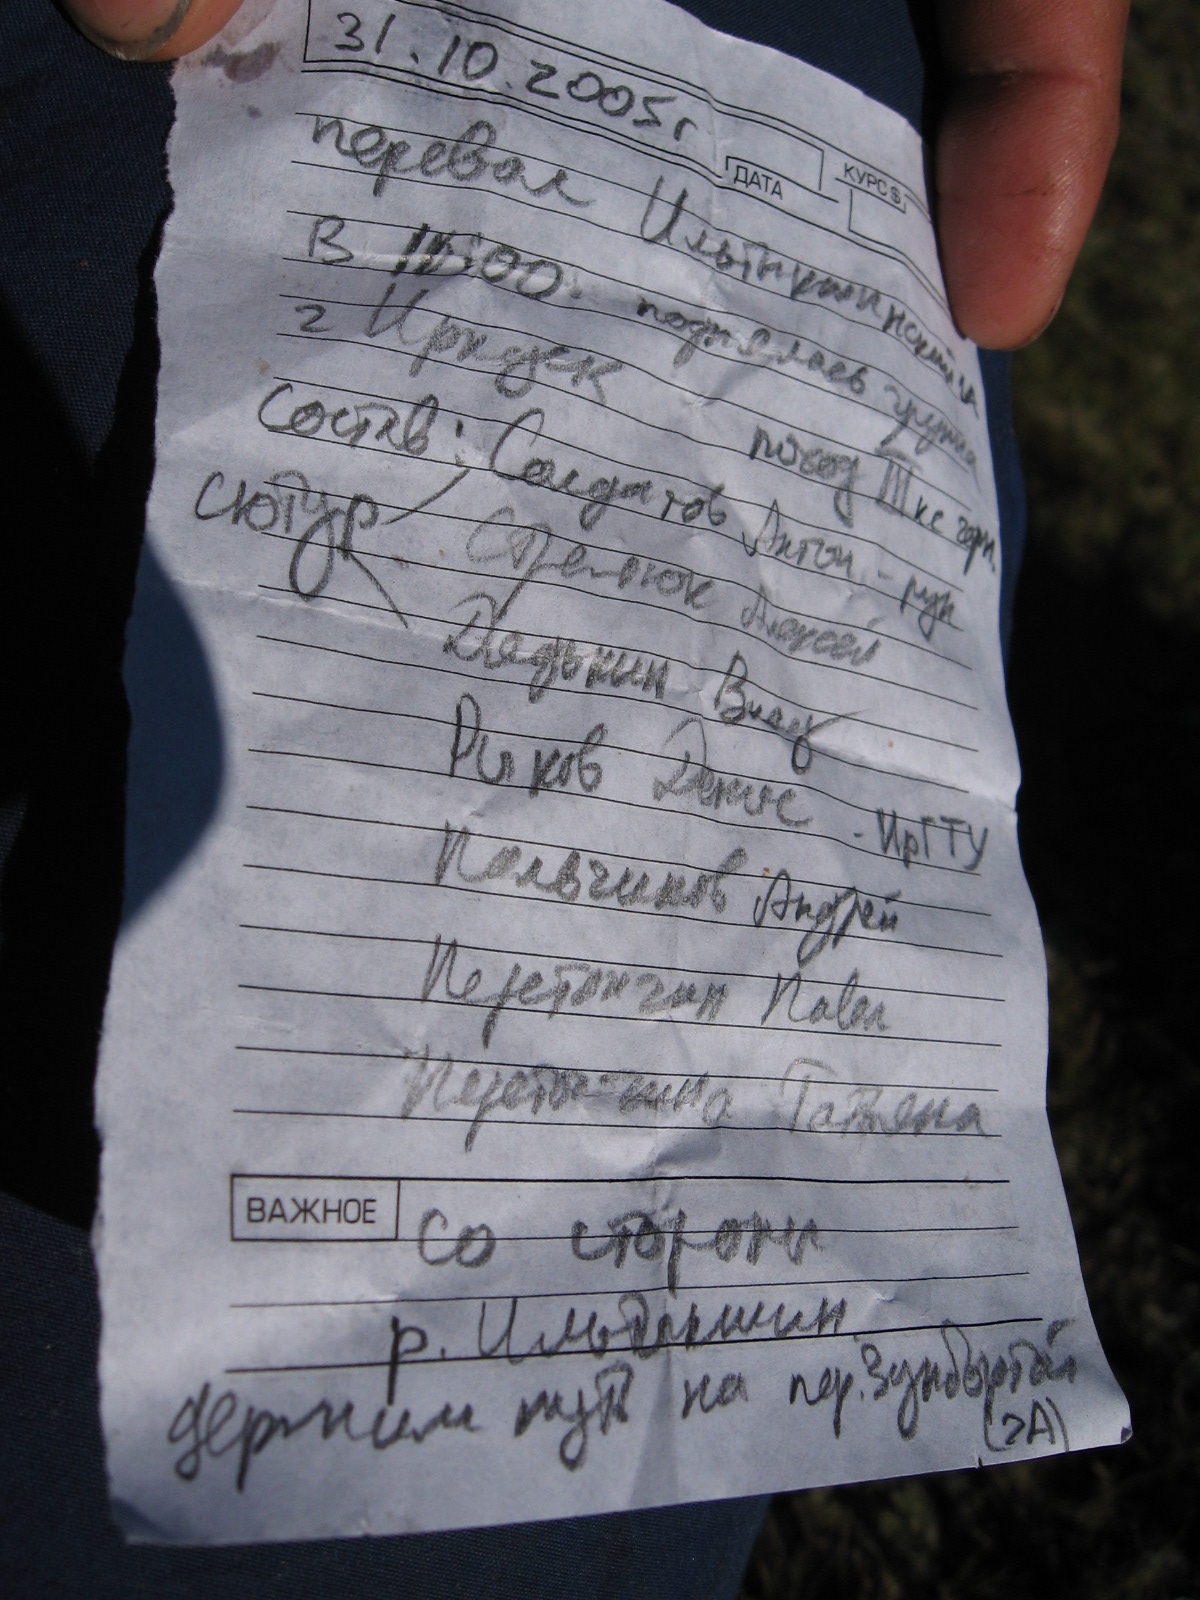 31.10.2005г
ДАТА КУРС $
перевал Ильтикшинский 1А
В :00. поднялась группа
г Иркутск поход III кс горн.
состав: Солдатов Антон - рук
сютур Стрелюк Алексей
Дядькин Влад
Рыков Денис - ИрГТУ
Пальчиков Андрей
Перетончин Павел
Татьяна
ВАЖНОЕ со стороны
р. Ильтикшин.
держим путь на пер. Зунбортой
(2А)